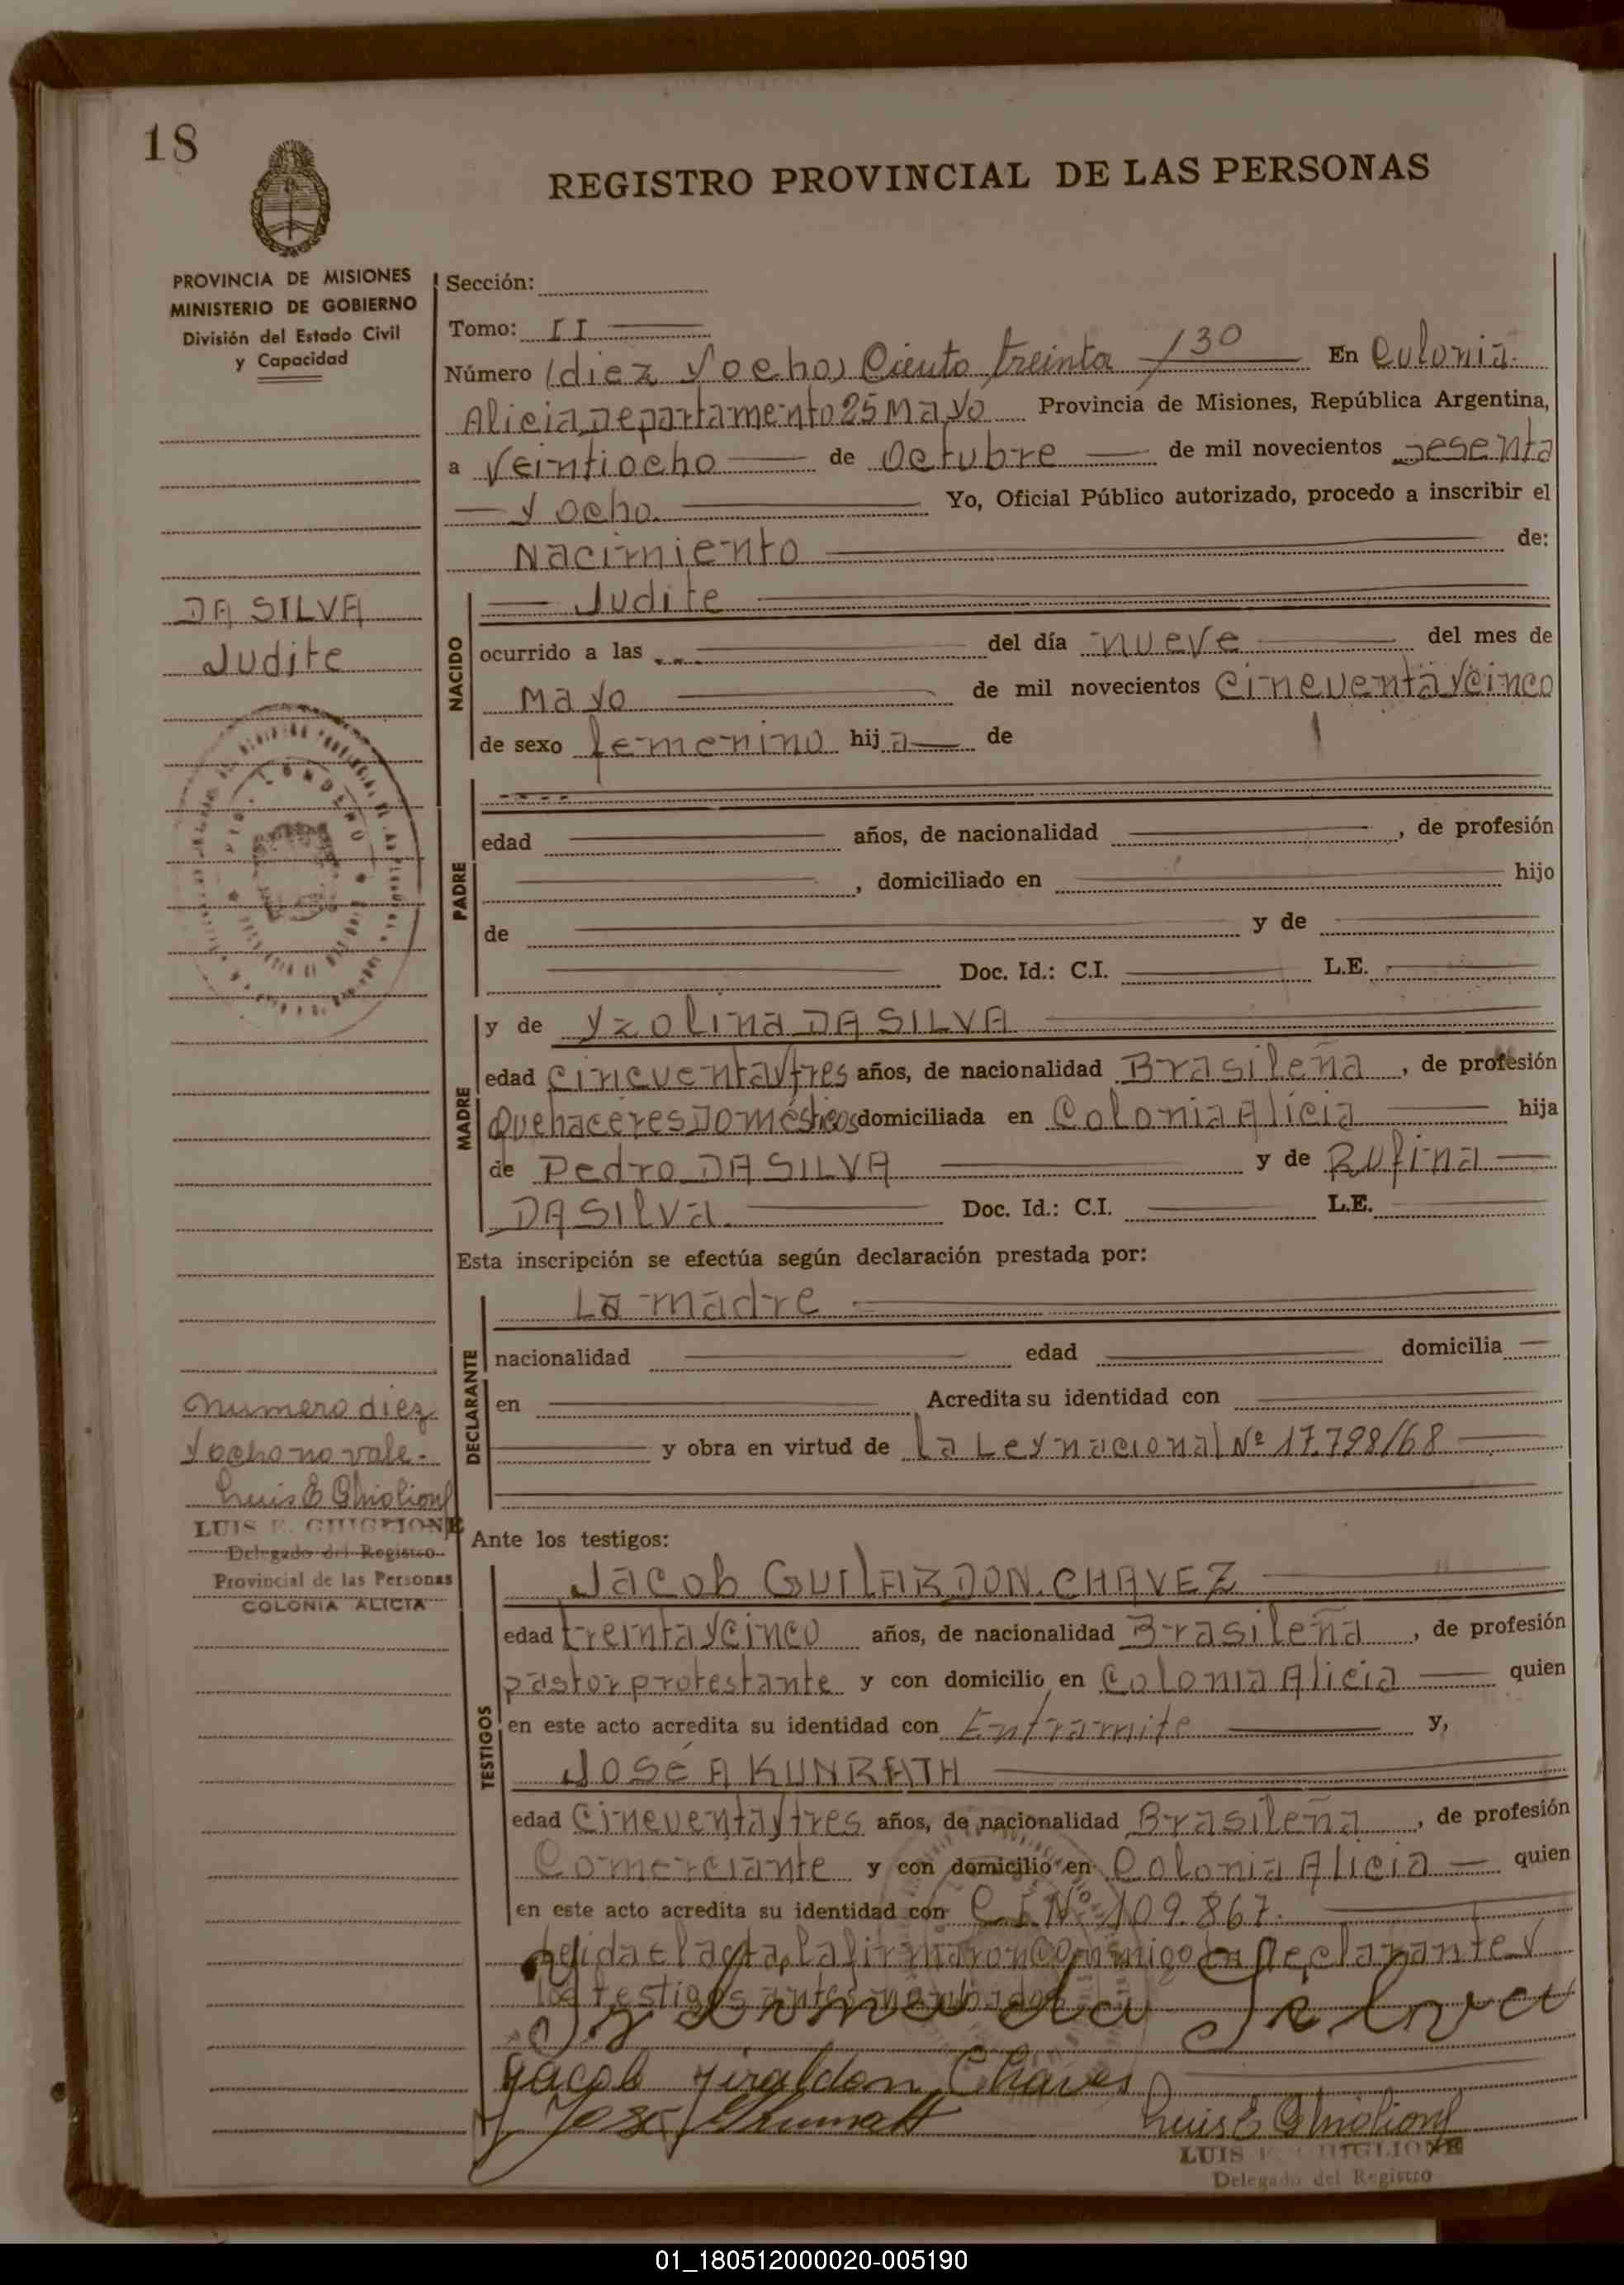 18
REGISTRO PROVINCIAL DE LAS PERSONAS
PROVINCIA DE MISIONES
MINISTERIO DE GOBIERNO
División del Estado Civil
y Capacidad
Sección:
Tomo: II
Número (diez y ocho) Ciento treinta 130 En Colonia
Alicia Departamento 25 Mayo Provincia de Misiones, República Argentina,
a Veintiocho de Octubre de mil novecientos sesenta
y ocho Yo, Oficial Público autorizado, procedo a inscribir el
Nacimiento de:
DA SILVA
Judite
NACIDO
Judite
ocurrido a las del día nueve del mes de
Mayo de mil novecientos cincuenta y cinco
de sexo femenino hij a de
PADRE
edad años, de nacionalidad , de profesión
, domiciliado en hijo
de y de
Doc. Id.: C.I. L.E.
MADRE
y de Yzolina DA SILVA
edad cincuenta y tres años, de nacionalidad Brasileña , de profesión
Quehaceres Domésticos domiciliada en Colonia Alicia hija
de Pedro DA SILVA y de Rufina
DA SILVA. Doc. Id.: C.I. L.E.
Esta inscripción se efectúa según declaración prestada por:
DECLARANTE
La madre
nacionalidad edad domicilia
en Acredita su identidad con
y obra en virtud de la Ley nacional Nº 17.798/68
numero diez
y ocho no vale.-
LUIS E. GHIGLIONE
Delegado del Registro
Provincial de las Personas
COLONIA ALICIA
Ante los testigos:
TESTIGOS
Jacob GUILARDON CHAVEZ
edad treinta y cinco años, de nacionalidad Brasileña , de profesión
pastor protestante y con domicilio en Colonia Alicia quien
en este acto acredita su identidad con En tramite y,
JOSÉ A KUNRATH
edad cincuenta y tres años, de nacionalidad Brasileña , de profesión
Comerciante y con domicilio en Colonia Alicia quien
en este acto acredita su identidad con C.I. Nº 109.867.
leida el acta, la firmaron conmigo la declarante y
los testigos antes nombrados
da Silva
Jacob Jiraldon Chaves
LUIS E. GHIGLIONE
Delegado del Registro
01_180512000020-005190